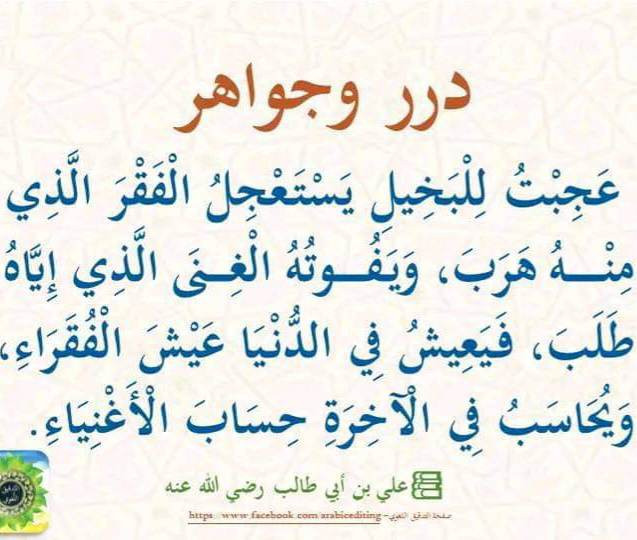 درر وجواهر
عَجِبْتُ لِلْبَخِيلِ يَسْتَعْجِلُ الْفَقْرَ الَّذِي
مِنْـــهُ هَرَبَ، وَيَفُــوتُهُ الْغِــنَى الَّذِي إِيَّاهُ
طَلَبَ، فَيَعِيشُ فِي الدُّنْيَا عَيْشَ الْفُقَرَاءِ،
وَيُحَاسَبُ فِي الْآخِرَةِ حِسَابَ الْأَغْنِيَاءِ.
علي بن أبي طالب رضي الله عنه
صفحة التدقيق اللغوي- https www facebook com/arabicediting